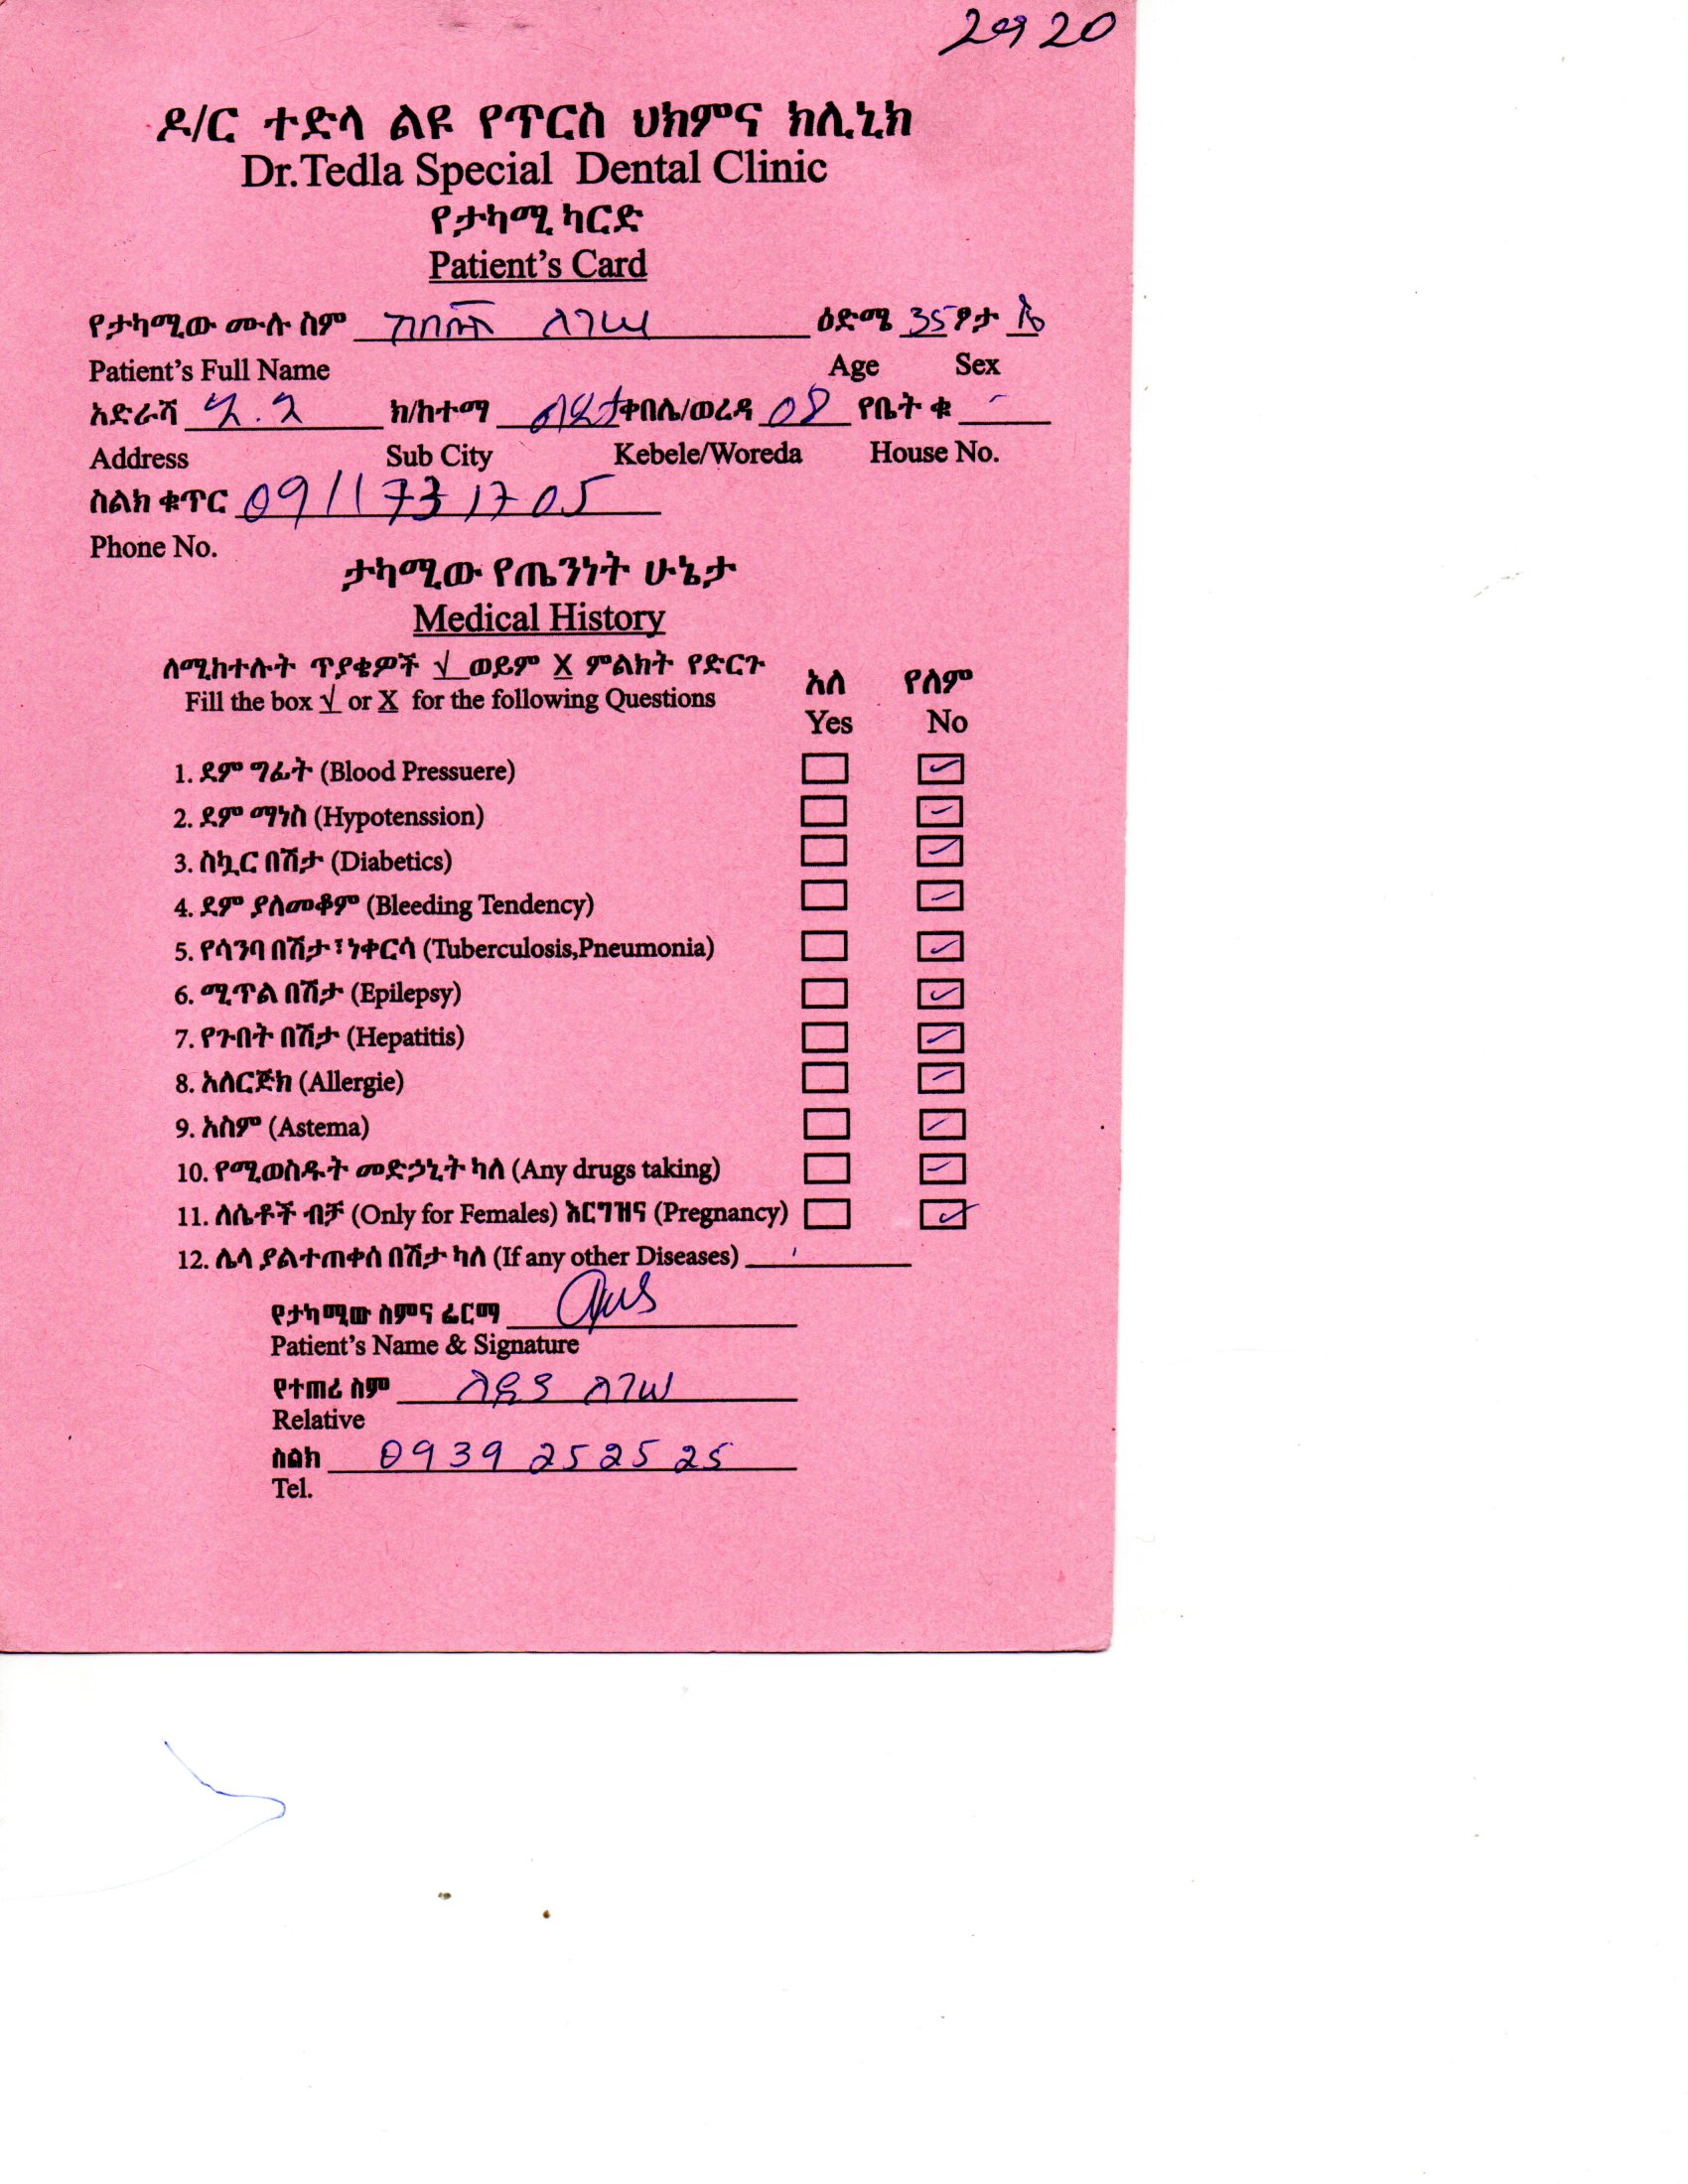 2920
ዶ/ር ተድላ ልዩ የጥርስ ህክምና ክሊኒክ
Dr.Tedla Special Dental Clinic
የታካሚ ካርድ
Patient's Card
የታካሚው ሙሉ ስም ለገሠ ዕድሜ 35 ፆታ ሴ
Patient's Full Name Age Sex
አድራሻ አ.አ ክ/ከተማ ልደታ ቀበሌ/ወረዳ 08 የቤት ቁ -
Address Sub City Kebele/Woreda House No.
ስልክ ቁጥር 0911731705
Phone No.
ታካሚው የጤንነት ሁኔታ
Medical History
ለሚከተሉት ጥያቄዎች √ ወይም X ምልክት የድርጉ አለ የለም
Fill the box √ or X for the following Questions Yes No
1. ደም ግፊት (Blood Pressuere) ✓
2. ደም ማነስ (Hypotenssion) ✓
3. ስኳር በሽታ (Diabetics) ✓
4. ደም ያለመቆም (Bleeding Tendency) ✓
5. የሳንባ በሽታ፣ነቀርሳ (Tuberculosis,Pneumonia) ✓
6. ሚጥል በሽታ (Epilepsy) ✓
7. የጉበት በሽታ (Hepatitis) ✓
8. አለርጅክ (Allergie) ✓
9. አስም (Astema) ✓
10. የሚወስዱት መድኃኒት ካለ (Any drugs taking) ✓
11. ለሴቶች ብቻ (Only for Females) እርግዝና (Pregnancy) ✓
12. ሌላ ያልተጠቀሰ በሽታ ካለ (If any other Diseases)
የታካሚው ስምና ፊርማ
Patient's Name & Signature
የተጠሪ ስም ለገሠ
Relative
ስልክ 0939 25 25 25
Tel.